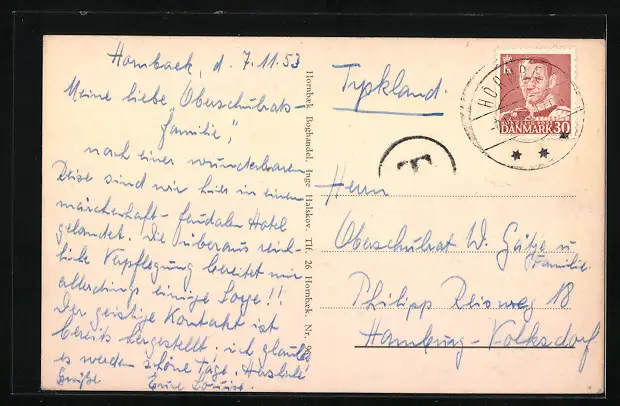 Hornbaek, d. 7.11.53
Meine liebe „Oberschulrats-
familie“,
nach einer wunderbaren
Reise sind wir hier in einem
märchenhaft-feudalen Hotel
gelandet. Die überaus reich-
liche Verpflegung bereitet mir
allerdings einige Sorge!!
Der geistige Kontakt ist
bereits hergestellt; ich glaube
es werden schöne Tage. Herzliche
Grüße Eure Louise.
Hornbæk Boghandel, Inge Halskov. Tlf. 26 Hornbæk. Nr.
Tyskland.
HORNBÆK
DANMARK 30
T
Herrn
Oberschulrat W. Gätje u
Familie
Philipp Reisweg 18
Hamburg-Volksdorf